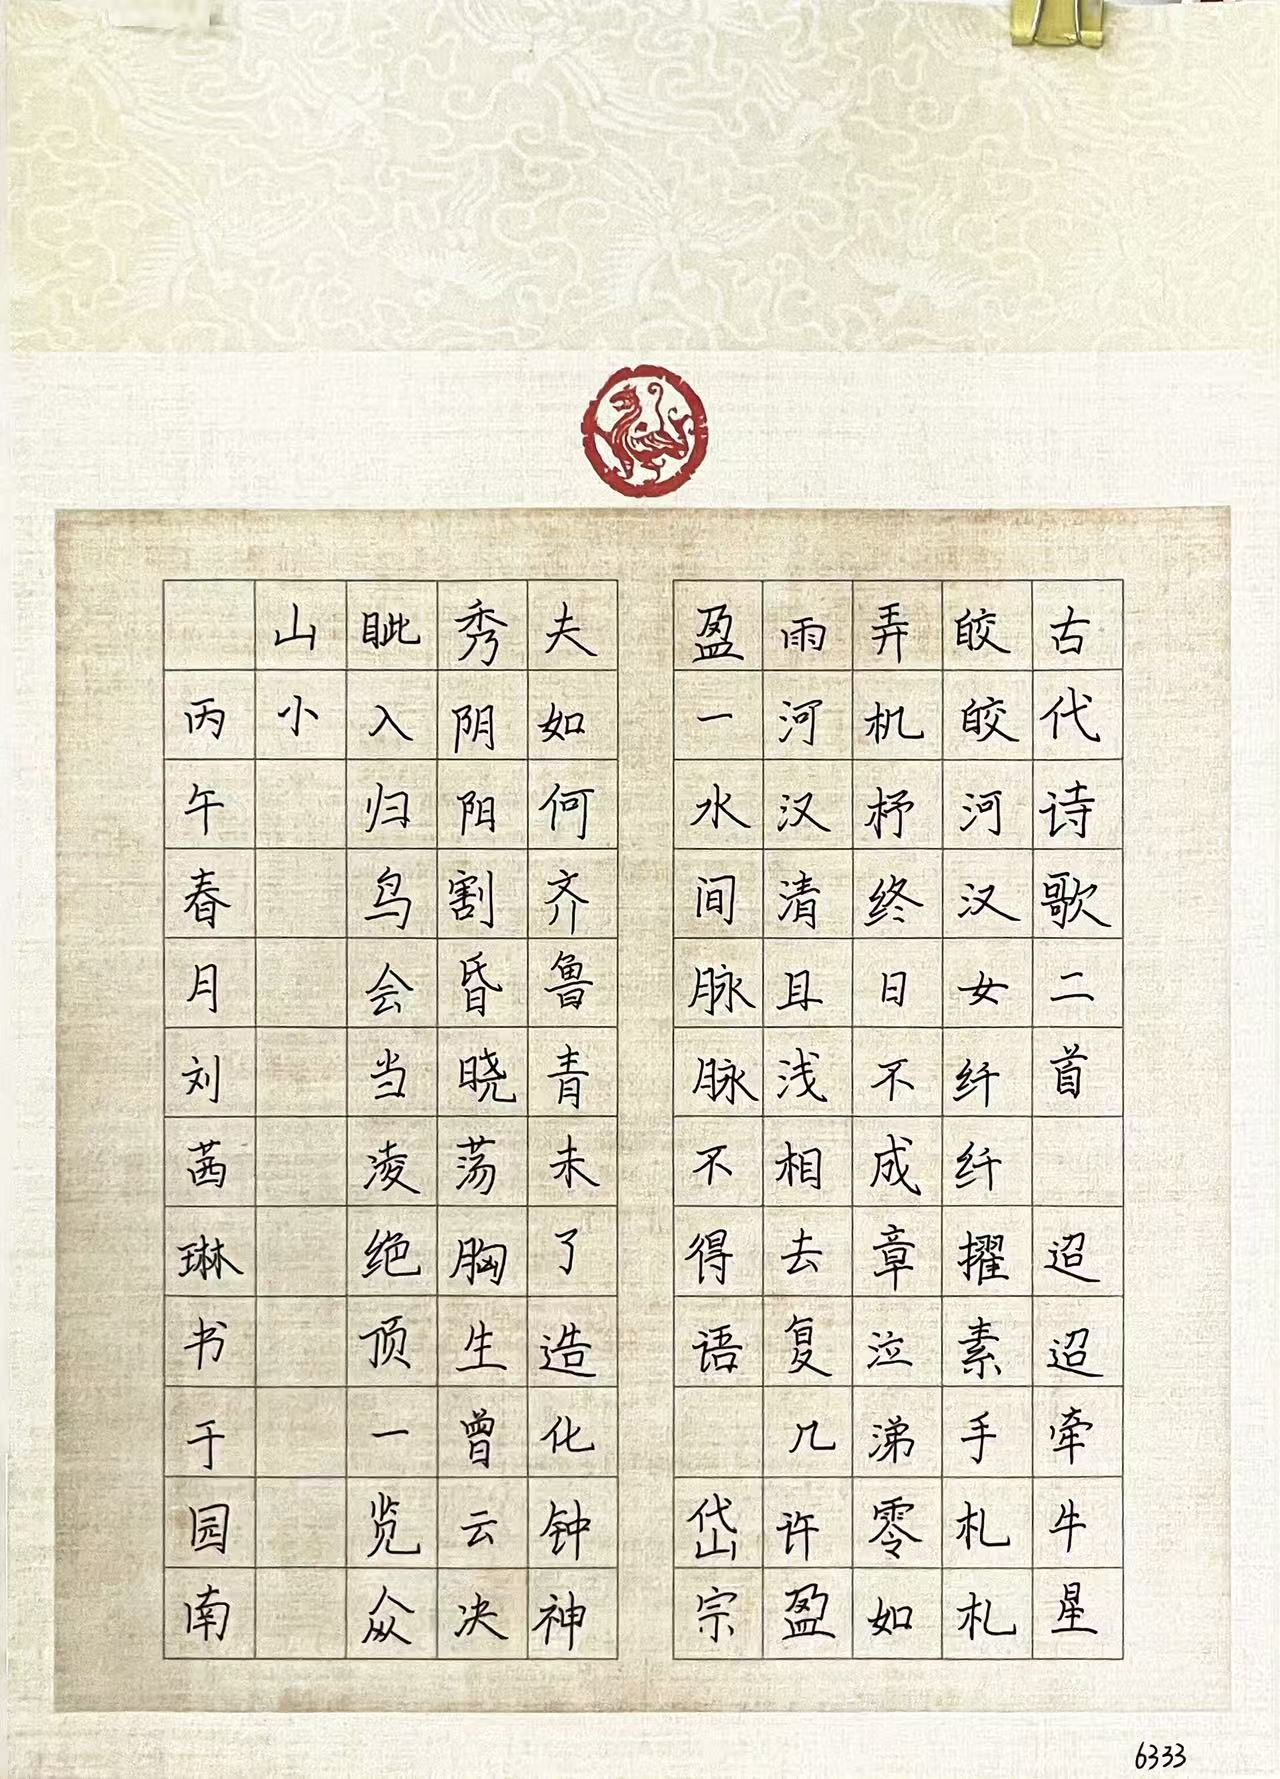 古代诗歌二首 迢迢牵牛星
皎皎河汉女纤纤擢素手札札
弄机杼终日不成章泣涕零如
雨河汉清且浅相去复几许盈
盈一水间脉脉不得语 岱宗
夫如何齐鲁青未了造化钟神
秀阴阳割昏晓荡胸生曾云决
眦入归鸟会当凌绝顶一览众
山小
丙午春月刘茜琳书于园南
6333